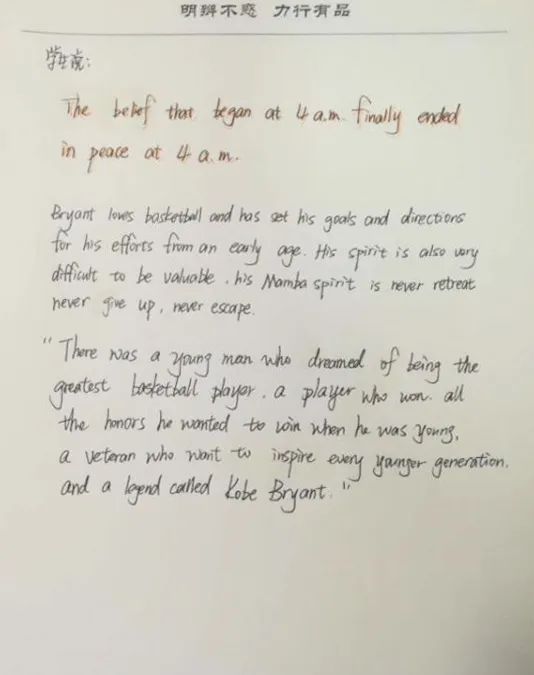 明辨不惑 力行有品
学生说:
The belief that began at 4 a.m. finally ended
in peace at 4 a.m.
Bryant loves basketball and has set his goals and directions
for his efforts from an early age. His spirit is also very
difficult to be valuable, his Mamba spirit is never retreat
never give up, never escape.
"There was a young man who dreamed of being the
greatest basketball player. a player who won. all
the honors he wanted to win when he was young,
a veteran who want to inspire every younger generation.
and a legend called Kobe Bryant."